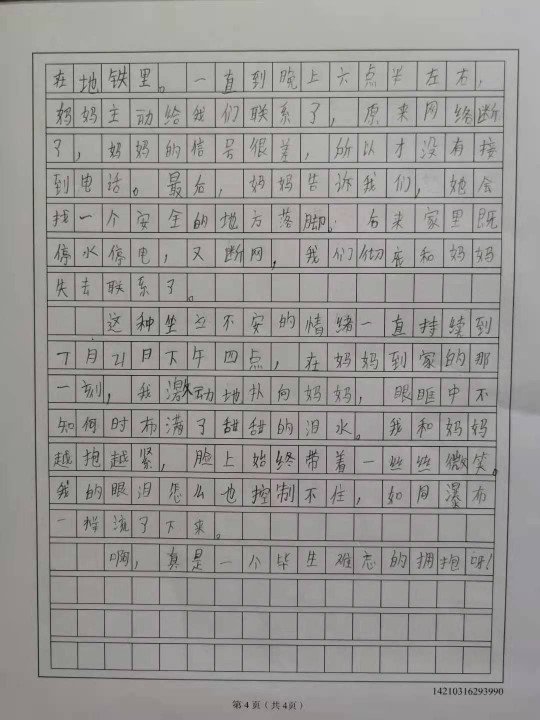 在地铁里。一直到晚上六点半左右，
妈妈主动给我们联系了，原来网络断
了，妈妈的信号很差，所以才没有接
到电话。最后，妈妈告诉我们，她会
找一个安全的地方落脚。后来家里既
停水停电，又断网，我们彻底和妈妈
失去联系了。
这种坐立不安的情绪一直持续到
7月21日下午四点，在妈妈到家的那
一刻，我激动地扑向妈妈，眼眶中不
知何时布满了甜甜的泪水。我和妈妈
越抱越紧，脸上始终带着一丝丝微笑。
我的眼泪怎么也控制不住，如同瀑布
一样流了下来。
啊，真是一个毕生难忘的拥抱呀！
第4页（共4页）
14210316293990